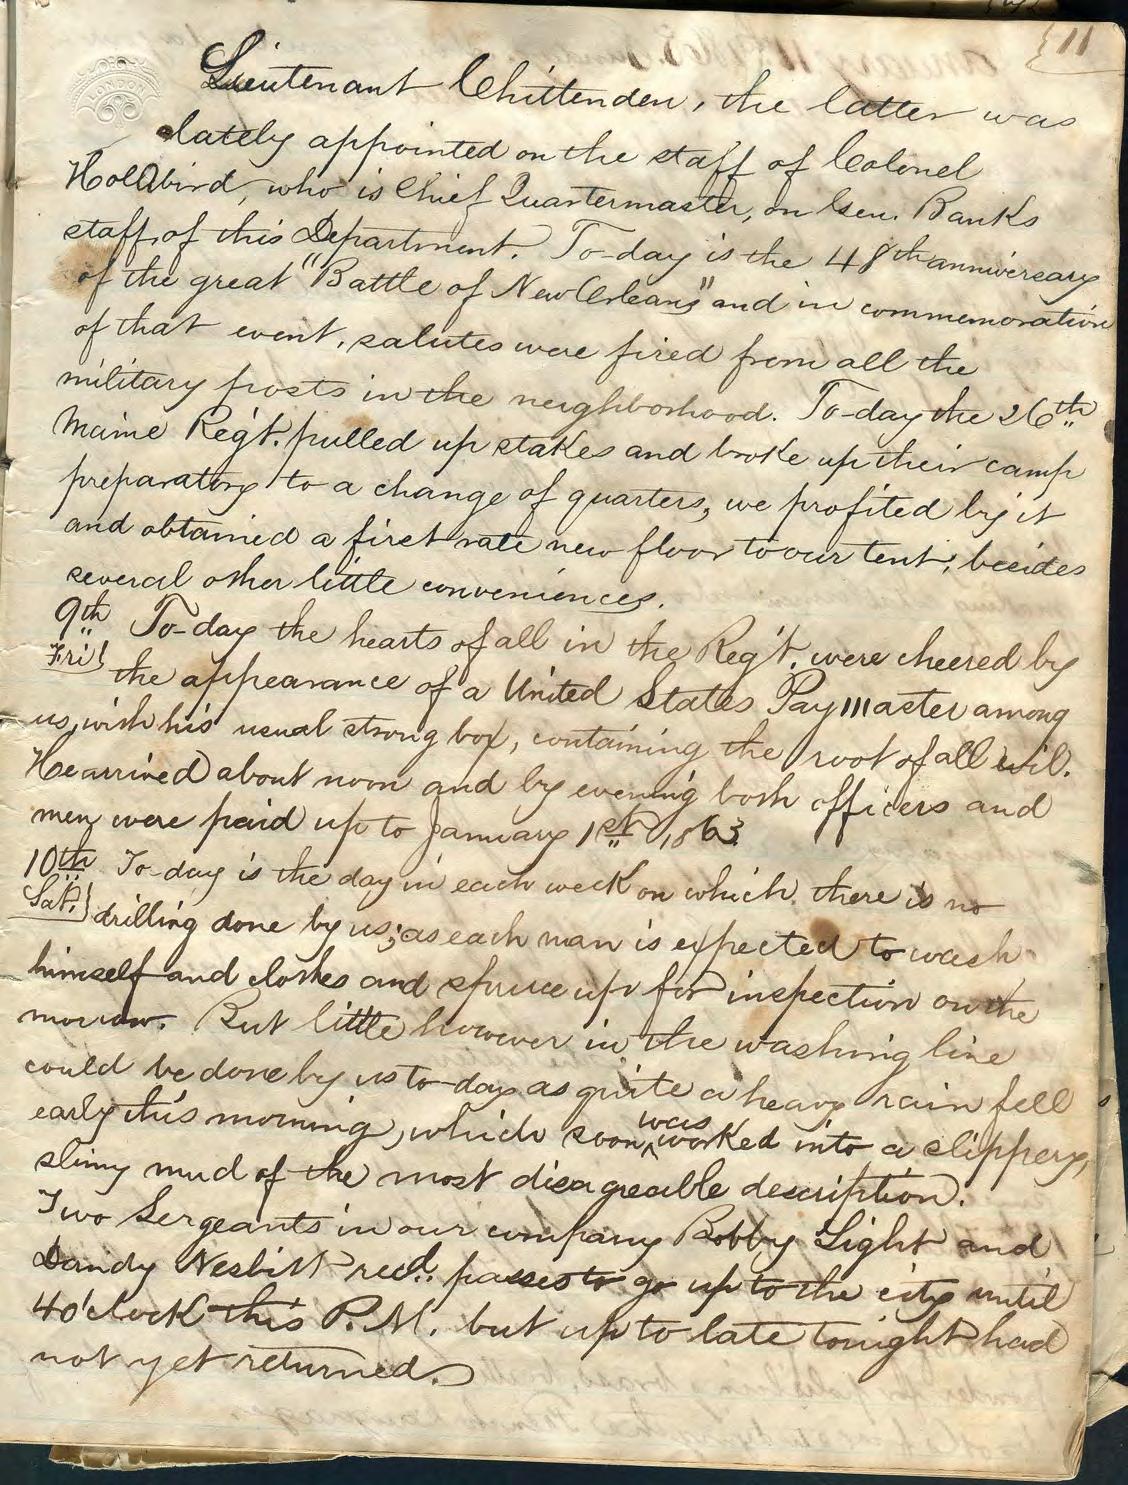 11
LONDON
Lieutenant Chittenden, the latter was
lately appointed on the staff of Colonel
Holabird, who is Chief Quartermaster, on Gen. Banks
staff, of this Department. To-day is the 48th anniversary
of the great "Battle of New Orleans" and in commemoration
of that event, salutes were fired from all the
military posts in the neighborhood. To-day the 26th
Maine Reg't. pulled up stakes and broke up their camp
preparatory to a change of quarters, we profited by it
and obtained a first rate new floor to our tent, besides
several other little conveniences.
9th To-day the hearts of all in the Reg't. were cheered by
Fri} the appearance of a United States Paymaster among
us, with his usual strong box, containing the root of all evil.
He arrived about noon and by evening both officers and
men were paid up to January 1st 1863
10th To-day is the day in each week on which there is no
Sat.} drilling done by us; as each man is expected to wash
himself and clothes and spruce up for inspection on the
morrow. But little however in the washing line
could be done by us to-day as quite a heavy rain fell
early this morning, which soon was worked into a slippery,
slimy mud of the most disagreeable description.
Two Sergeants in our company Bobby Light and
Dandy Nesbitt recd. passes to go up to the city until
4 o'clock this P.M. but up to late tonight had
not yet returned.